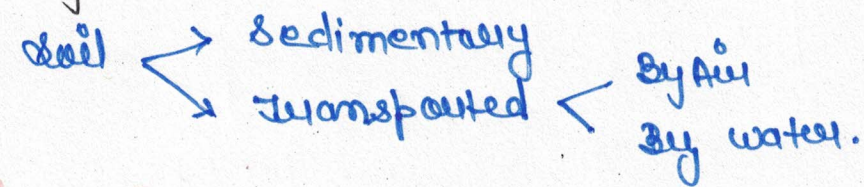 Soil
Sedimentary
Transported
By Air
By water.